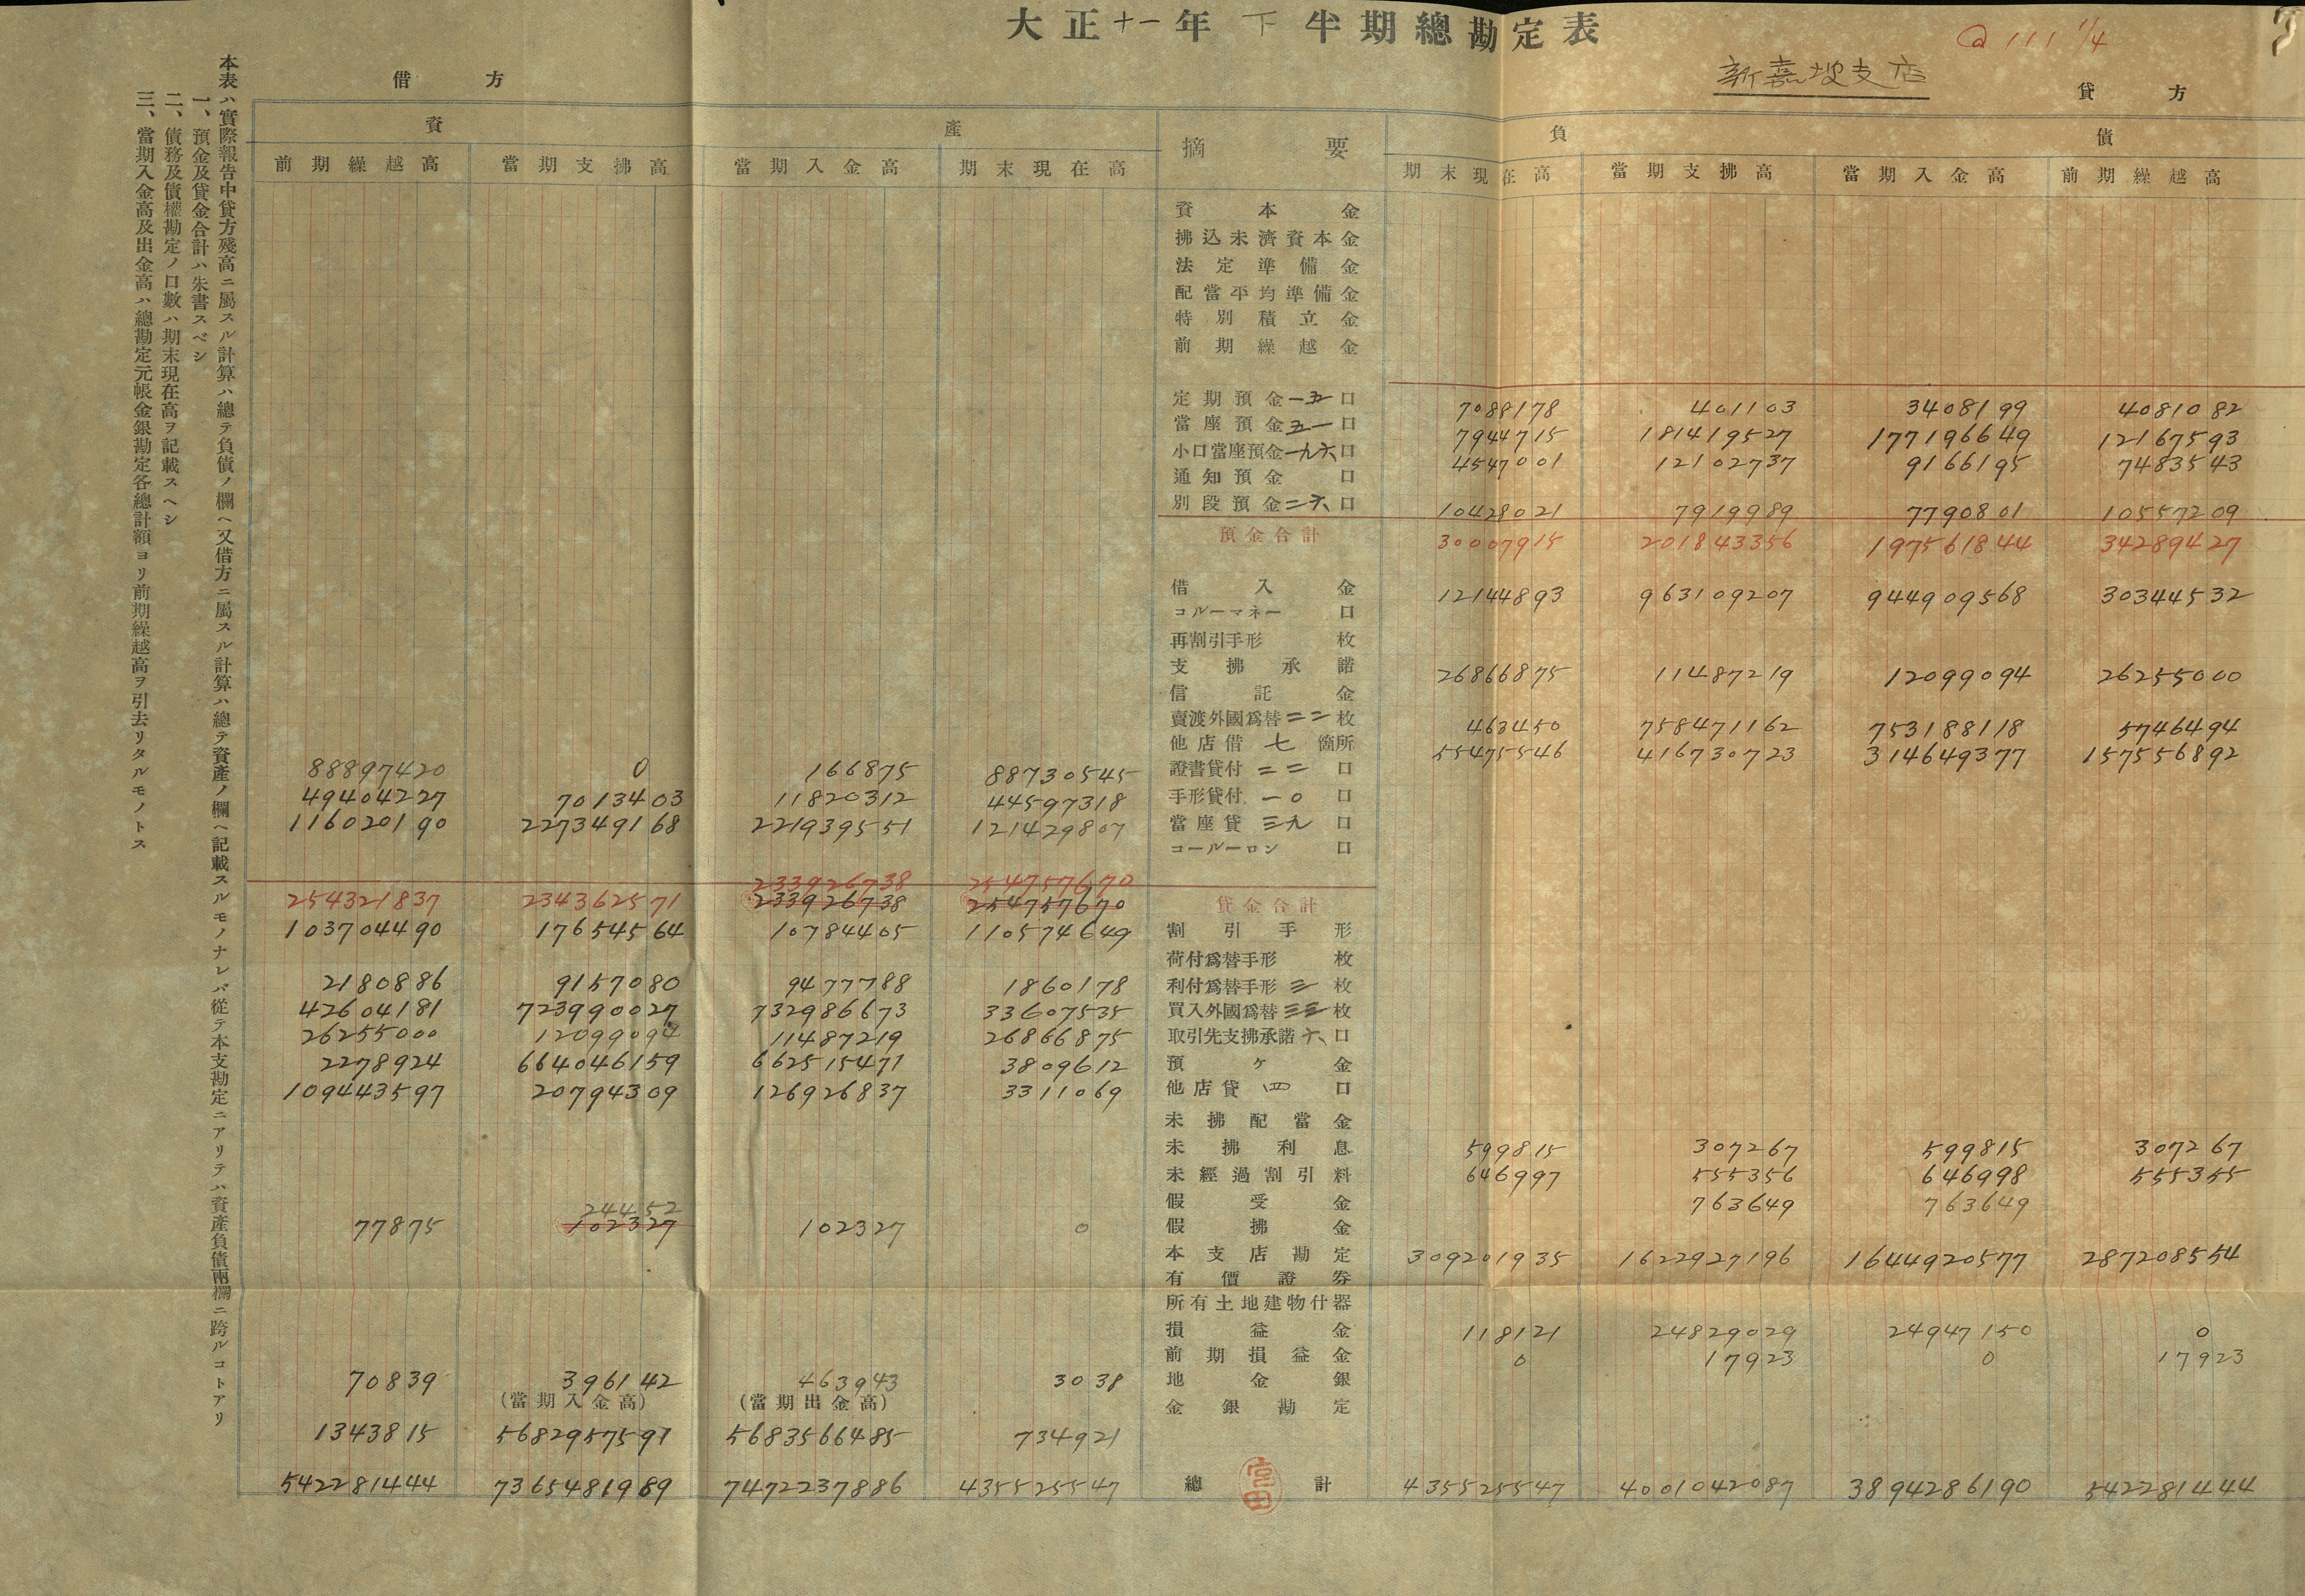 大正十一年下半期總勘定表
@ 111 1/4
新嘉坡支店
借方
貸方
資產
摘要
負債
前期繰越高 當期支拂高 當期入金高 期末現在高 期末現在高 當期支拂高 當期入金高 前期繰越高
資本金
拂込未濟資本金
法定準備金
配當平均準備金
特別積立金
前期繰越金
定期預金一五口 7088178 401103 3408199 4081082
當座預金五一口 7944715 181419527 177196649 12167593
小口當座預金一九六口 4547001 12102737 9166195 7483543
通知預金口
別段預金二六口 10428021 7919989 7790801 10557209
預金合計 30007915 201843356 197561844 34289427
借入金 12144893 963109207 944909568 30344532
コルーマネー口
再割引手形枚
支拂承諾 26866875 11487219 12099094 26255000
信託金
賣渡外國爲替二二枚 463450 758471162 753188118 5746494
他店借七箇所 55475546 416730723 314649377 157556892
88897420 0 166875 88730545 證書貸付二二口
49404227 7013403 11820312 44597318 手形貸付一〇口
116020190 227349168 221939551 121429807 當座貸三九口
コールーロン口
233926738 254757670
254321837 234362571 233926738 254757670 貸金合計
103704490 17654564 10784405 110574649 割引手形
荷付爲替手形枚
2180886 9157080 9477788 1860178 利付爲替手形三枚
42604181 723990027 732986673 33607535 買入外國爲替三三枚
26255000 12099094 11487219 26866875 取引先支拂承諾六口
2278924 664046159 662515471 3809612 預ヶ金
109443597 20794309 126926837 3311069 他店貸四口
未拂配當金
未拂利息 599815 307267 599815 307267
未經過割引料 646997 555356 646998 555355
假受金 763649 763649
24452
77875 102327 102327 0 假拂金
本支店勘定 309201935 1622927196 1644920577 287208554
有價證券
所有土地建物什器
損益金 118121 24829029 24947150 0
前期損益金 0 17923 0 17923
70839 396142 463943 3038 地金銀
(當期入金高) (當期出金高)
金銀勘定
1343815 5682957597 5683566485 734921
542281444 7365481969 7472237886 435525547 總計 435525547 4001042087 3894286190 542281444
本表ハ實際報告中貸方殘高ニ屬スル計算ハ總テ負債ノ欄ヘ又借方ニ屬スル計算ハ總テ資產ノ欄ヘ記載スルモノナレバ從テ本支勘定ニアリテハ資產負債兩欄ニ跨ルコトアリ
一、預金及貸金合計ハ朱書スベシ
二、債務及債權勘定ノ口數ハ期末現在高ヲ記載スヘシ
三、當期入金高及出金高ハ總勘定元帳金銀勘定各總計額ヨリ前期繰越高ヲ引去リタルモノトス